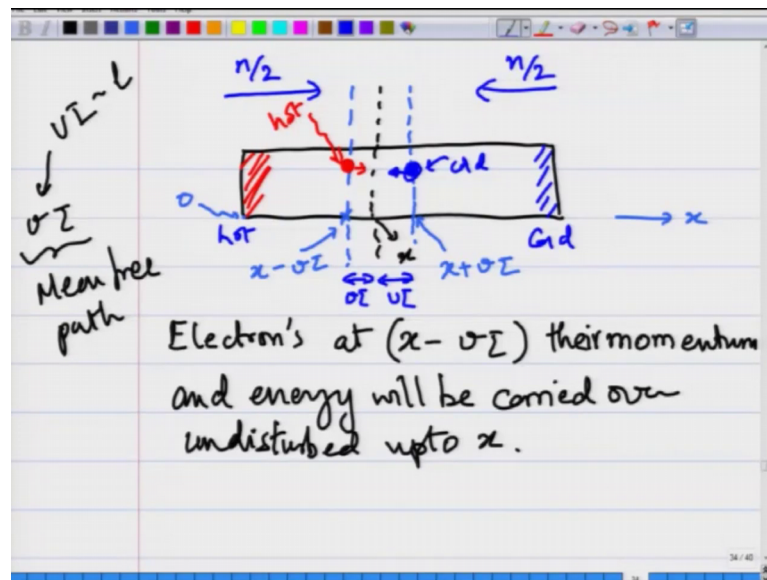 n/2
n/2
hot
cold
vτ ~ l
vτ
Mean free
path
0
hot
x - vτ
x
x + vτ
Cold
x
vτ vτ
Electron's at (x - vτ) their momentum
and energy will be carried over
undisturbed upto x.
34 / 40